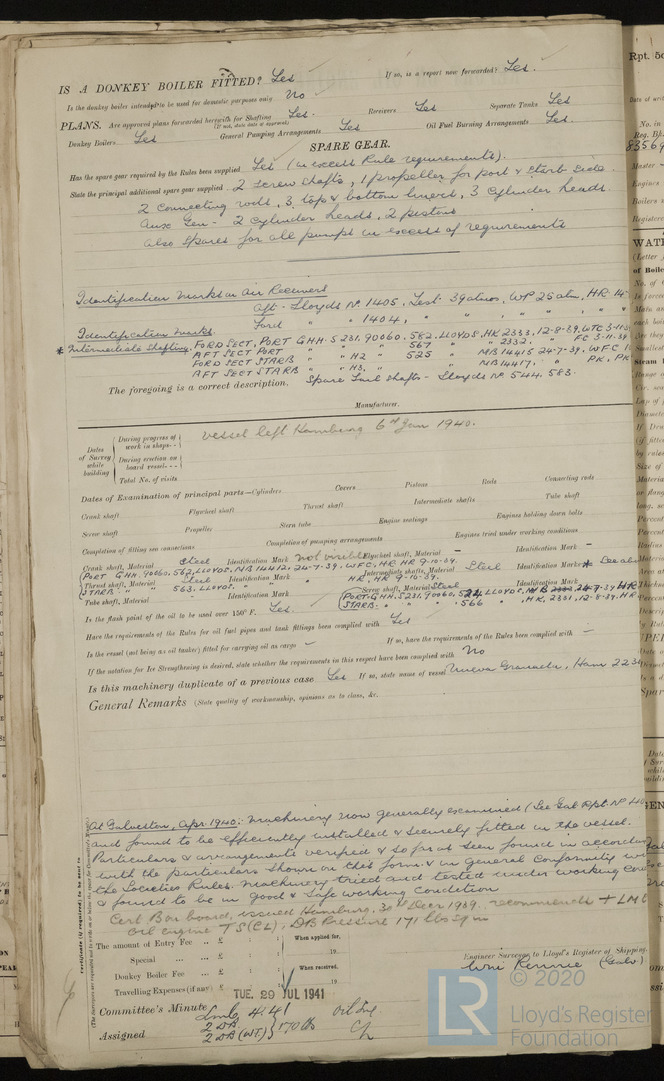 IS A DONKEY BOILER FITTED? Yes If so, is a report now forwarded? Yes.
Is the donkey boiler intended to be used for domestic purposes only No
PLANS. Are approved plans forwarded herewith for Shafting Yes. Receivers Yes Separate Tanks Yes
(If not, state date of approval)
Donkey Boilers Yes General Pumping Arrangements Yes Oil Fuel Burning Arrangements Yes
SPARE GEAR.
Has the spare gear required by the Rules been supplied Yes (in excess Rule requirements).
State the principal additional spare gear supplied 2 screw shafts, 1 propeller for port & starb side
2 connecting rods, 3 top & bottom liners, 3 cylinder heads.
Aux Gen - 2 cylinder heads, 2 pistons
Also spares for all pumps in excess of requirements
Identification Marks on Air Receivers
Aft - Lloyds No 1405, Test 39 atmos, WP 25 atm, HR 14
Ford " " 1404, " " "
Identification Marks.
* Intermediate Shafting. FORD SECT, PORT GHH. 5231. 90060. 582. LLOYDS. HK 2333, 12-8-39. WFC 3-11-3
AFT SECT PORT " " " 567 " " 2332. " FC 3-11-39
FORD SECT STARB " " H2 " 525 " MB 14415 24-7-39. WFC 1
AFT SECT STARB " " H3, " " MB 14417. " PK, PK
The foregoing is a correct description. Spare Tail shafts - Lloyds No 544. 583.
Manufacturer.
Vessel left Hamburg 6th Jan 1940.
Dates of Survey while building
During progress of work in shops - -
During erection on board vessel - - -
Total No. of visits
Dates of Examination of principal parts—Cylinders Covers Pistons Rods Connecting rods
Crank shaft Flywheel shaft Thrust shaft Intermediate shafts Tube shaft
Screw shaft Propeller Stern tube Engine seatings Engines holding down bolts
Completion of fitting sea connections Completion of pumping arrangements Engines tried under working conditions
Crank shaft, Material Steel Identification Mark Not visible Flywheel shaft, Material – Identification Mark –
(PORT GHH. 90060. 562, LLOYDS, MB 14412. 24-7-39. WFC, HR, HR 9-10-39.
Thrust shaft, Material Steel Identification Mark Intermediate shafts, Material Steel Identification Marks * See abo
(STARB: " " 563, LLOYDS. " " HR, HR 9-10-39.
Tube shaft, Material Identification Mark Screw shaft, Material Steel Identification Mark
(PORT: GHH. 5231. 90060, 524 LLOYDS, MB 24-7-39 HR
Is the flash point of the oil to be used over 150° F. Yes. (STARB: " " 566 " , HK, 2331, 12-8-39, HR
Have the requirements of the Rules for oil fuel pipes and tank fittings been complied with Yes
Is the vessel (not being an oil tanker) fitted for carrying oil as cargo – If so, have the requirements of the Rules been complied with –
If the notation for Ice Strengthening is desired, state whether the requirements in this respect have been complied with No
Is this machinery duplicate of a previous case Yes If so, state name of vessel Nueva Granada, Ham 223
General Remarks (State quality of workmanship, opinions as to class, &c.
At Galveston, Apr. 1940: - Machinery now generally examined (See Gal Rpt. No
and found to be efficiently installed & securely fitted in the vessel.
Particulars & arrangements verified & so far as seen found in accordan
with the particulars shown on this form & in general conformity wi
the Societies Rules. Machinery tried and tested under working con
& found to be in good & safe working condition
Cert B on board, issued Hamburg, 30th Decr 1939. recommends + LMC
oil engine TS (CL), DB Pressure 171 lbs sq in
The amount of Entry Fee .. £ : : When applied for,
Special .. .. £ : : 19
Donkey Boiler Fee .. £ : : When received,
Travelling Expenses (if any) £ : : 19
Engineer Surveyor to Lloyd's Register of Shipping.
Wm Rennie (Galv)
TUE. 29 JUL 1941
Committee's Minute
Assigned Lmc 4.41 Oil Eng
2 DB
2 DB (WT) } 170 lb CL
Certificate (if required) to be sent to
Rpt. 5c
No. in
Reg. Bk.
83569
Master
Engines
Boilers
WAT
(Letter
of Boile
© 2020
LR
Lloyd's Register
Foundation